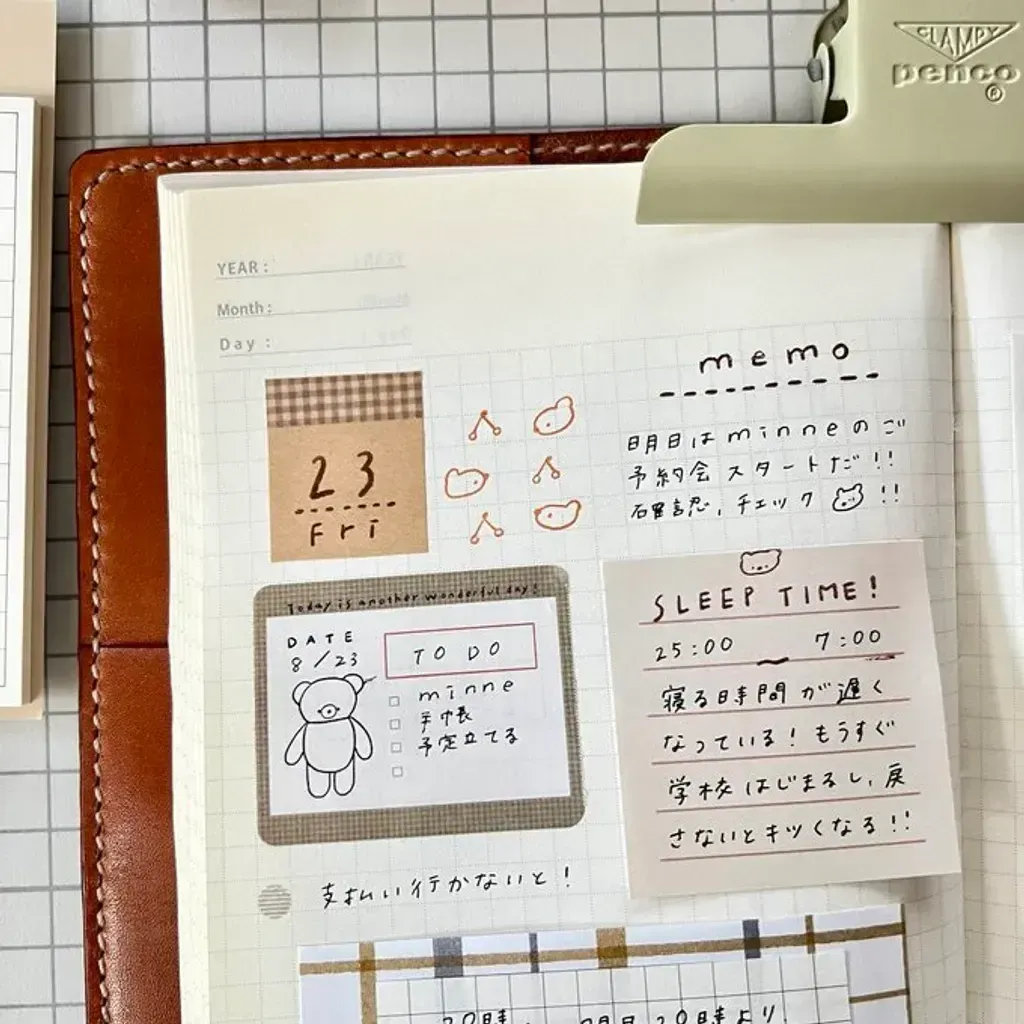 CLAMPY
penco
®
YEAR :
Month :
Day :
23
Fri
memo
明日はminneのご
予約会スタートだ!!
確認、チェック !!
Today is another wonderful day!
DATE
8/23
TO DO
minne
手帳
予定立てる
SLEEP TIME!
25:00 ~ 7:00
寝る時間が遅く
なっている!もうすぐ
学校はじまるし、戻
さないとキツくなる!!
支払い行かないと!
20時より